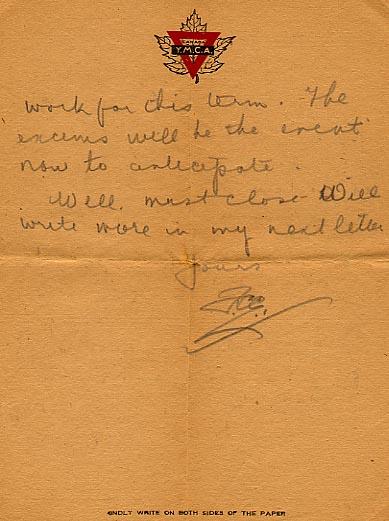 CANADA
Y.M.C.A.
work for this term. The
exams will be the event
now to anticipate.
Well, must close. Will
write more in my next letter
Yours
KINDLY WRITE ON BOTH SIDES OF THE PAPER